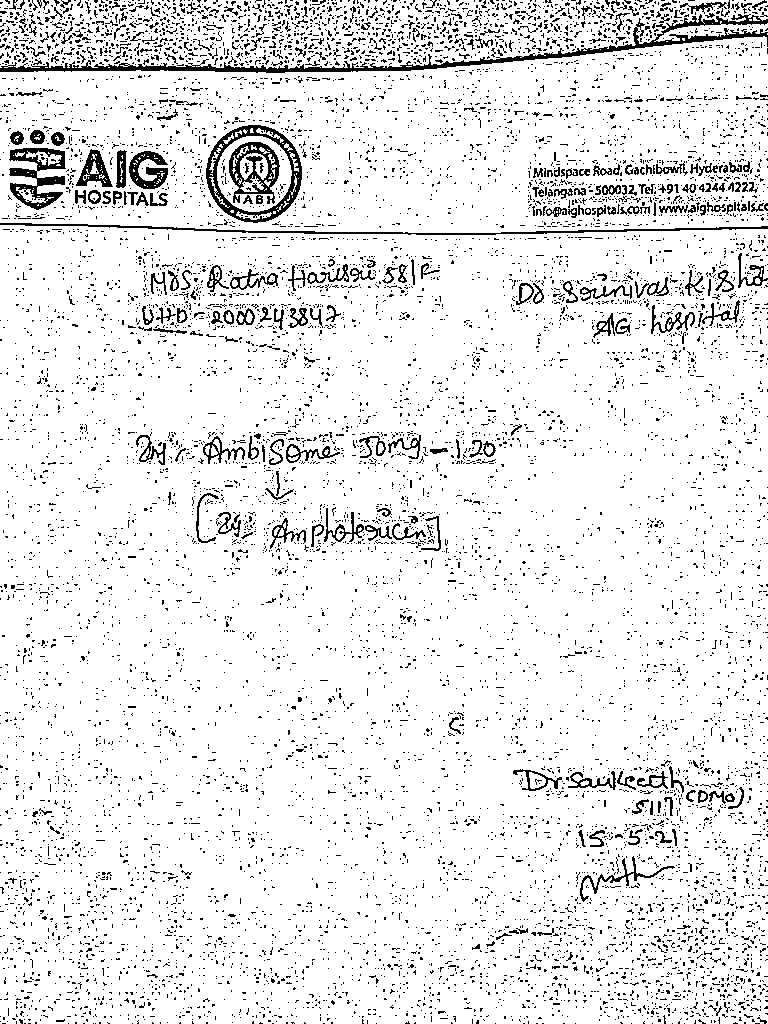 AIG
HOSPITALS
NABH
Mindspace Road, Gachibowli, Hyderabad,
Telangana - 500032, Tel: +91 40 4244 4222,
info@aighospitals.com | www.aighospitals.co
Mrs. Ratna Harisri 58/F
UHID - 2000243847
Dr Srinivas Kisho
AIG hospital
Inj. Ambisome 50mg - 120
↓
[Inj. Amphotericin]
Dr Saikeerth
5117 (DMO)
15-5-21